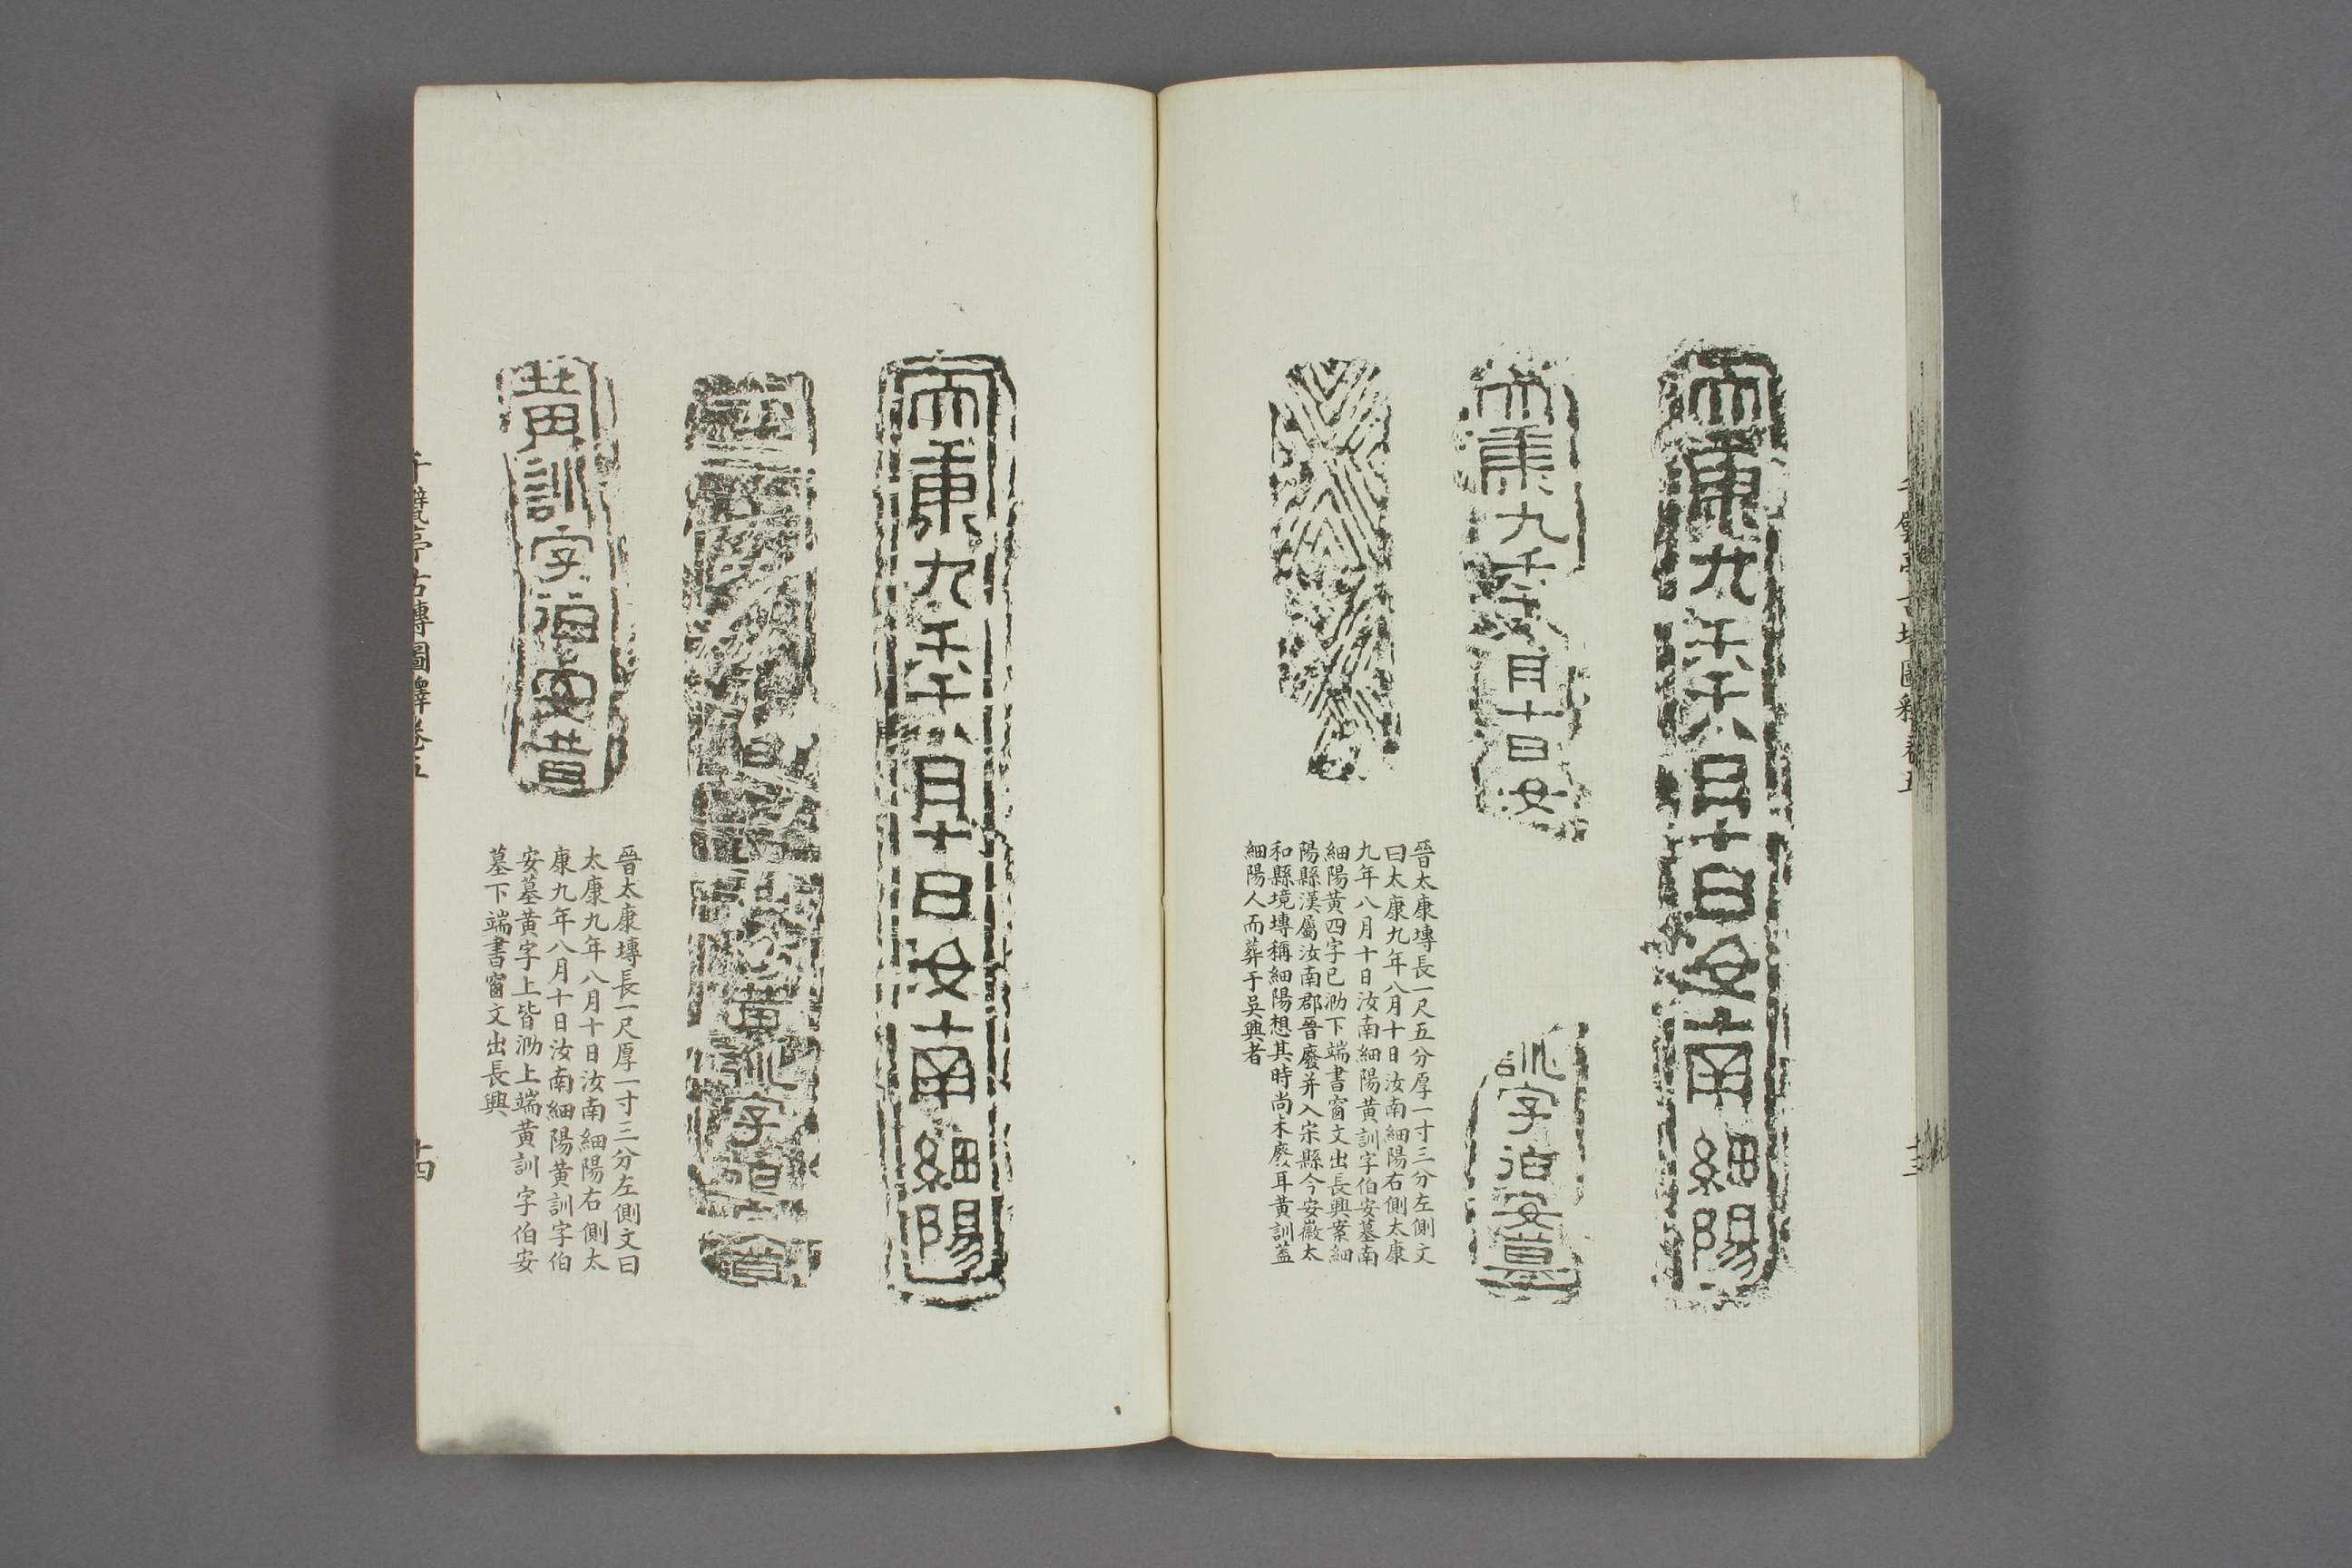 太康九年八月十日汝南細陽
康九年八月十日汝
訓字伯安墓
晉太康塼長一尺五分厚一寸三分左側文
曰太康九年八月十日汝南細陽右側太康
九年八月十日汝南細陽黃訓字伯安墓南
細陽黃四字已泐下端書窗文出長興案細
陽縣漢屬汝南郡晉廢并入宋縣今安徽太
和縣境塼稱細陽想其時尚未廢耳黃訓蓋
細陽人而葬于吳興者
太康九年八月十日汝南細陽
黃訓字伯
黃訓字伯安墓
晉太康塼長一尺厚一寸三分左側文曰
太康九年八月十日汝南細陽右側太
康九年八月十日汝南細陽黃訓字伯
安墓黃字上皆泐上端黃訓字伯安
墓下端書窗文出長興
千甓亭古塼圖釋卷五
十四